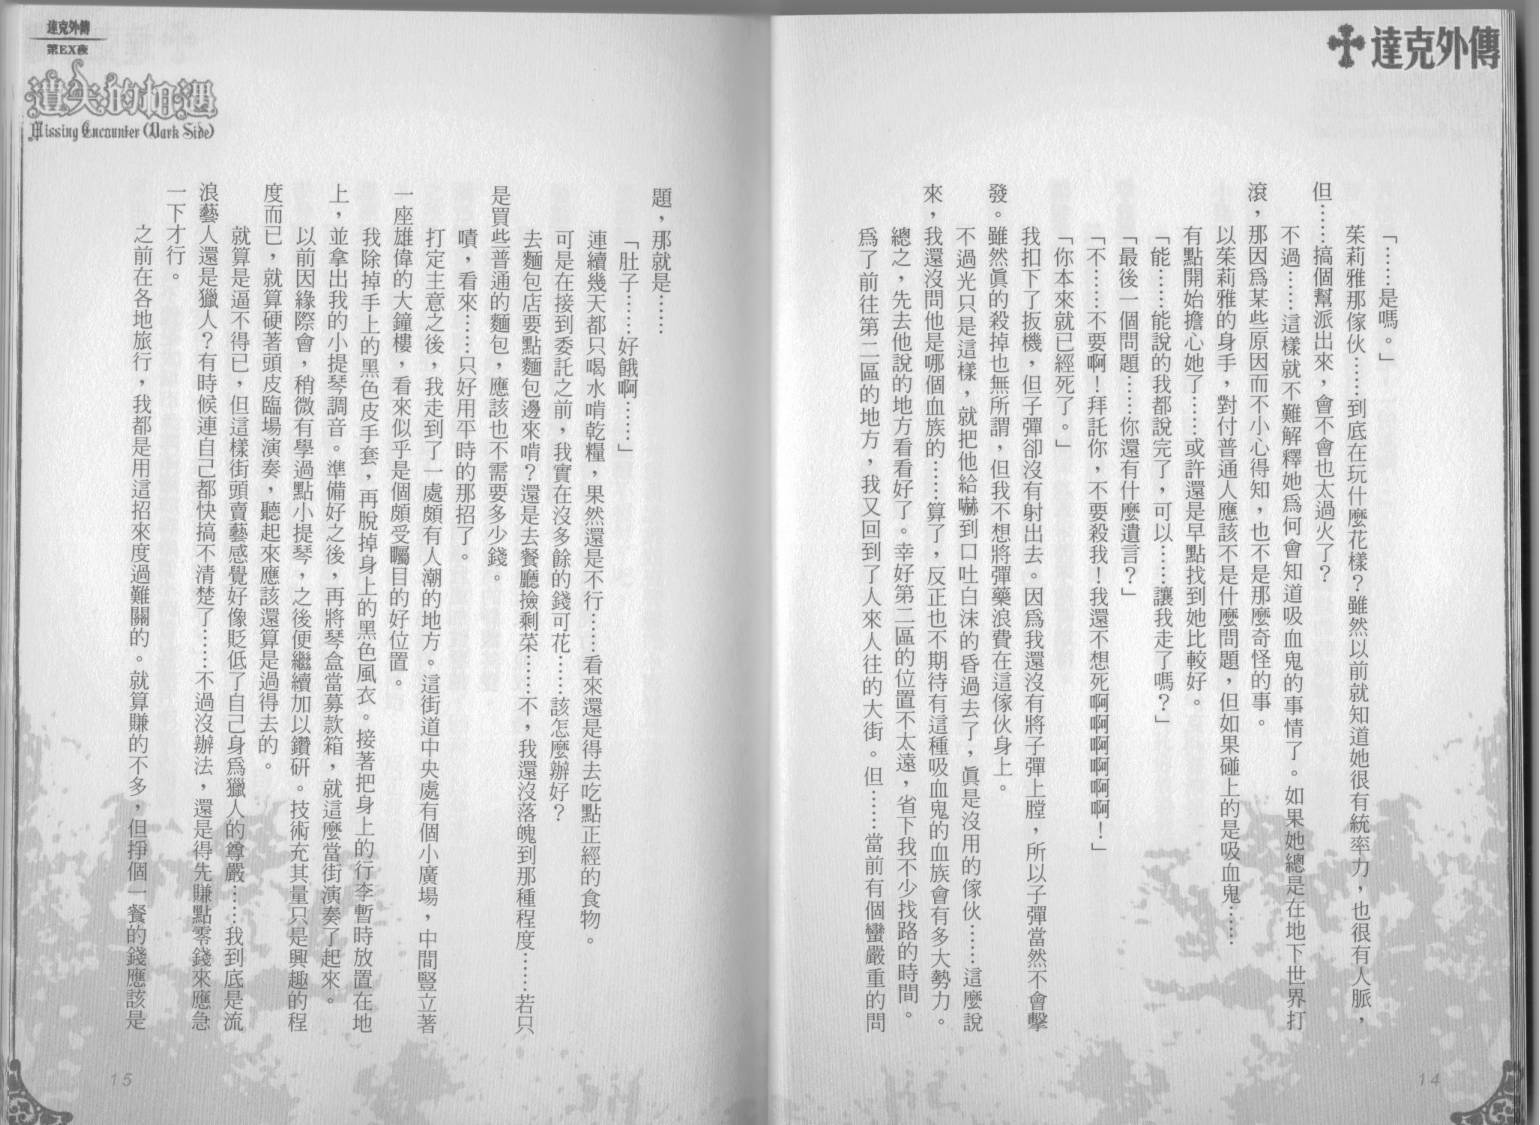 達克外傳
「……是嗎。」
茱莉雅那傢伙……到底在玩什麼花樣？雖然以前就知道她很有統率力，也很有人脈，
但……搞個幫派出來，會不會也太過火了？
不過……這樣就不難解釋她為何會知道吸血鬼的事情了。如果她總是在地下世界打
滾，那因為某些原因而不小心得知，也不是那麼奇怪的事。
以茱莉雅的身手，對付普通人應該不是什麼問題，但如果碰上的是吸血鬼……
有點開始擔心她了……或許還是早點找到她比較好。
「能……能說的我都說完了，可以……讓我走了嗎？」
「最後一個問題……你還有什麼遺言？」
「不……不要啊！拜託你，不要殺我！我還不想死啊啊啊啊啊啊！」
「你本來就已經死了。」
我扣下了扳機，但子彈卻沒有射出去。因為我還沒有將子彈上膛，所以子彈當然不會擊
發。雖然真的殺掉也無所謂，但我不想將彈藥浪費在這傢伙身上。
不過光只是這樣，就把他給嚇到口吐白沫的昏過去了，真是沒用的傢伙……這麼說
來，我還沒問他是哪個血族的……算了，反正也不期待有這種吸血鬼的血族會有多大勢力。
總之，先去他說的地方看看好了。幸好第二區的位置不太遠，省下我不少找路的時間。
為了前往第二區的地方，我又回到了人來人往的大街。但……當前有個蠻嚴重的問
14
達克外傳
第EX夜
遺失的相遇
Missing Encounter (Dark Side)
題，那就是……
「肚子……好餓啊……」
連續幾天都只喝水啃乾糧，果然還是不行……看來還是得去吃點正經的食物。
可是在接到委託之前，我實在沒多餘的錢可花……該怎麼辦好？
去麵包店要點麵包邊來啃？還是去餐廳撿剩菜……不，我還沒落魄到那種程度……若只
是買些普通的麵包，應該也不需要多少錢。
嘖，看來……只好用平時的那招了。
打定主意之後，我走到了一處頗有人潮的地方。這街道中央處有個小廣場，中間豎立著
一座雄偉的大鐘樓，看來似乎是個頗受矚目的好位置。
我除掉手上的黑色皮手套，再脫掉身上的黑色風衣。接著把身上的行李暫時放置在地
上，並拿出我的小提琴調音。準備好之後，再將琴盒當募款箱，就這麼當街演奏了起來。
以前因緣際會，稍微有學過點小提琴，之後便繼續加以鑽研。技術充其量只是興趣的程
度而已，就算硬著頭皮臨場演奏，聽起來應該還算是過得去的。
就算是逼不得已，但這樣街頭賣藝感覺好像貶低了自己身為獵人的尊嚴……我到底是流
浪藝人還是獵人？有時候連自己都快搞不清楚了……不過沒辦法，還是得先賺點零錢來應急
一下才行。
之前在各地旅行，我都是用這招來度過難關的。就算賺的不多，但掙個一餐的錢應該是
15